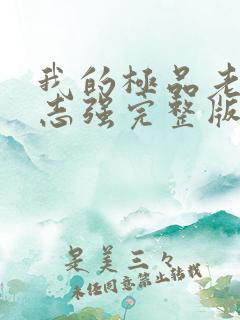 我的極品老
志强完整版
是美三々
未经同意禁止转载